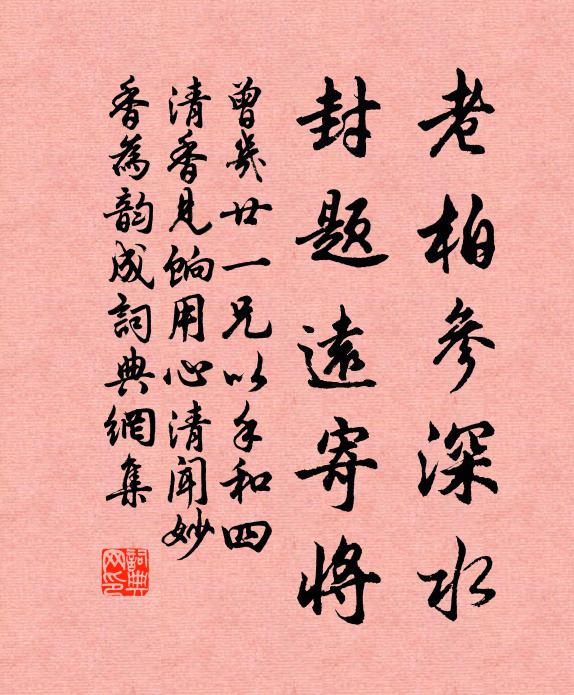 老柏參深水
封題遠寄將
曾幾廿一兄以手和四
清香見餉用心清聞妙
香為韵成詞典網集
詞典網印